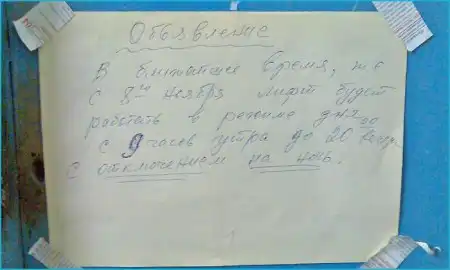 Объявление
В ближайшее время, т.е
с 8го ноября лифт будет
работать в режиме дня
с 9 часов утра до 20
с отключением на ночь.